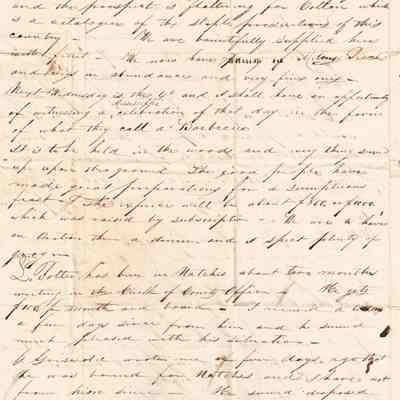 and the prospect is flattering for Cotton which
is a catalogue of the staple productions of this
country - We are bountifully supplied here
with fruit - We now have Plums Peach
and in abundance and very fine ones -
Next Wednesday is the 4th and I shall have an opportunity
Mississippi
of witnessing a celebration of that day in the form
of what they call a Barbecue
It is to be held in the woods and every thing
up upon the ground The good people have
made great preparations for a Sumptuous
feast - The expence will be about
which was raised by subscription - We are to have
an Oration then a dinner and I expect plenty of
Potter has been in Natches about two months
writing in the Clerk of County Office - He gets
per month and board - I received a
a few days since from him and he seemed
much pleased with his situation -
wrote me a few days ago that
he was bound for Natches and I have not
from him since - He seemed disposed